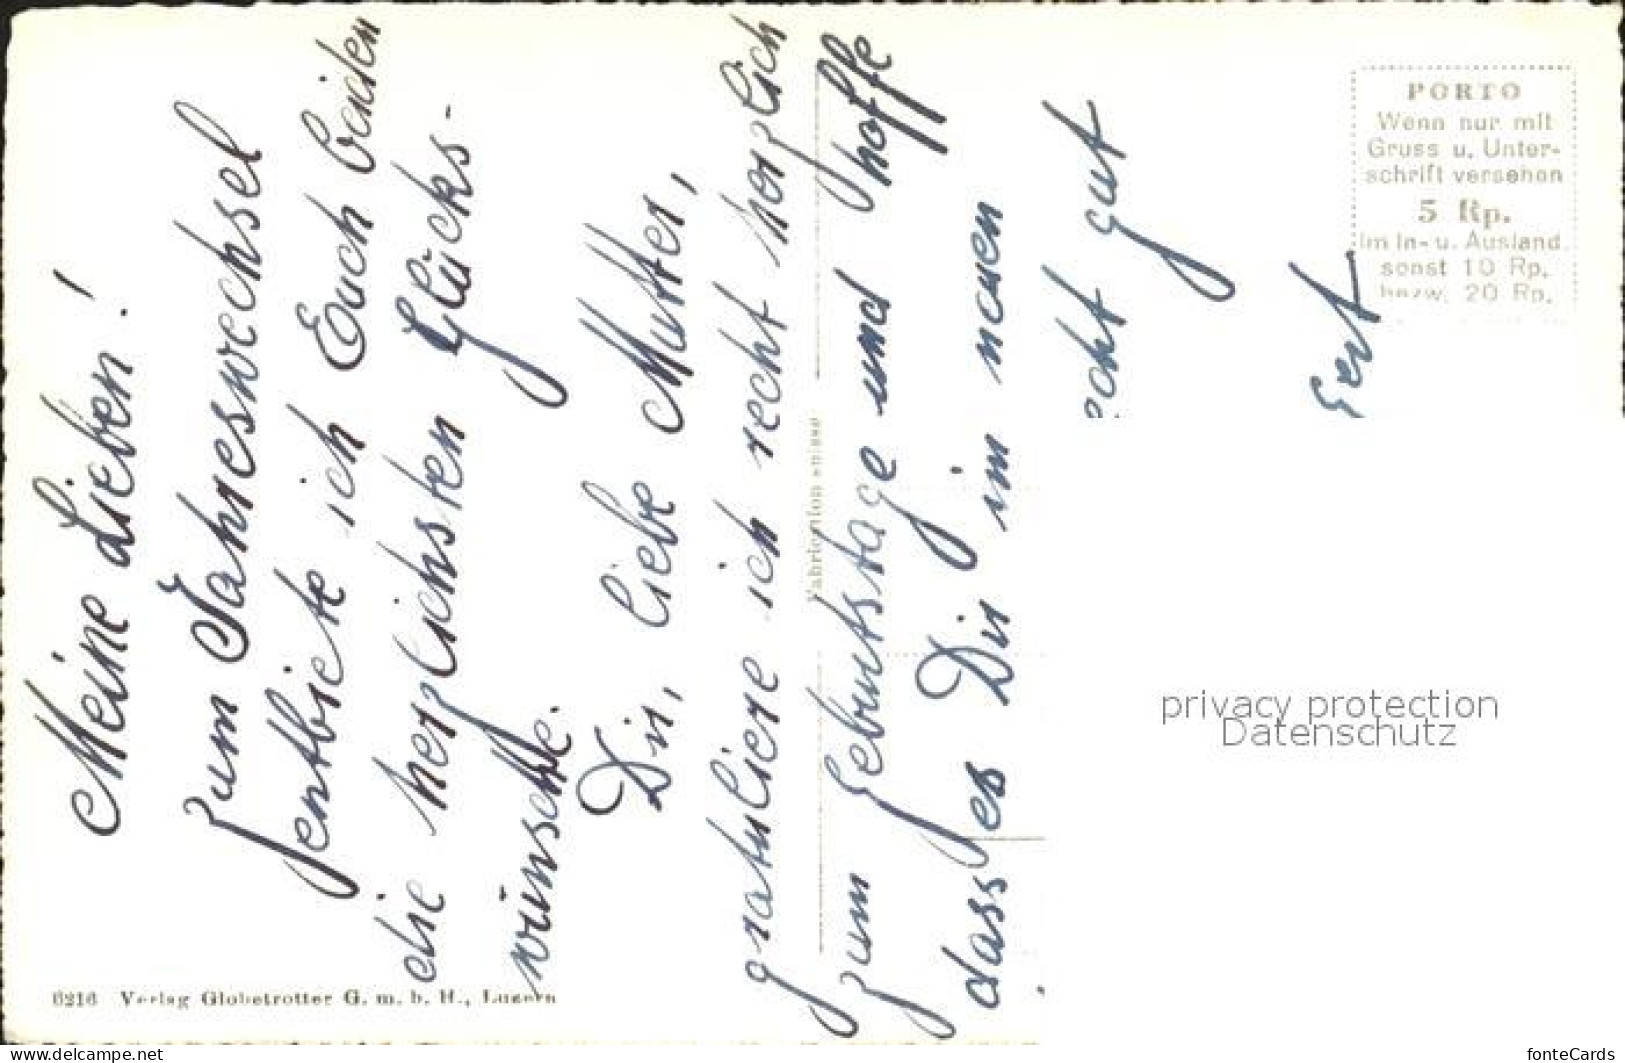 Meine Lieben!
Zum Jahreswechsel
entbiete ich Euch beiden
die herzlichsten Glücks-
wünsche.
Dir, liebe Mutter,
gratuliere ich recht herzlich
zum Geburtstage und hoffe
dass es Dir im neuen
gut
Gert
PORTO
Wenn nur mit
Gruss u. Unter-
schrift versehen
5 Rp.
Im In- u. Ausland.
sonst 10 Rp.
bezw. 20 Rp.
Fabrication suisse
6216 Verlag Globetrotter G. m. b. H., Luzern
privacy protection
Datenschutz
www.delcampe.net
fonteCards